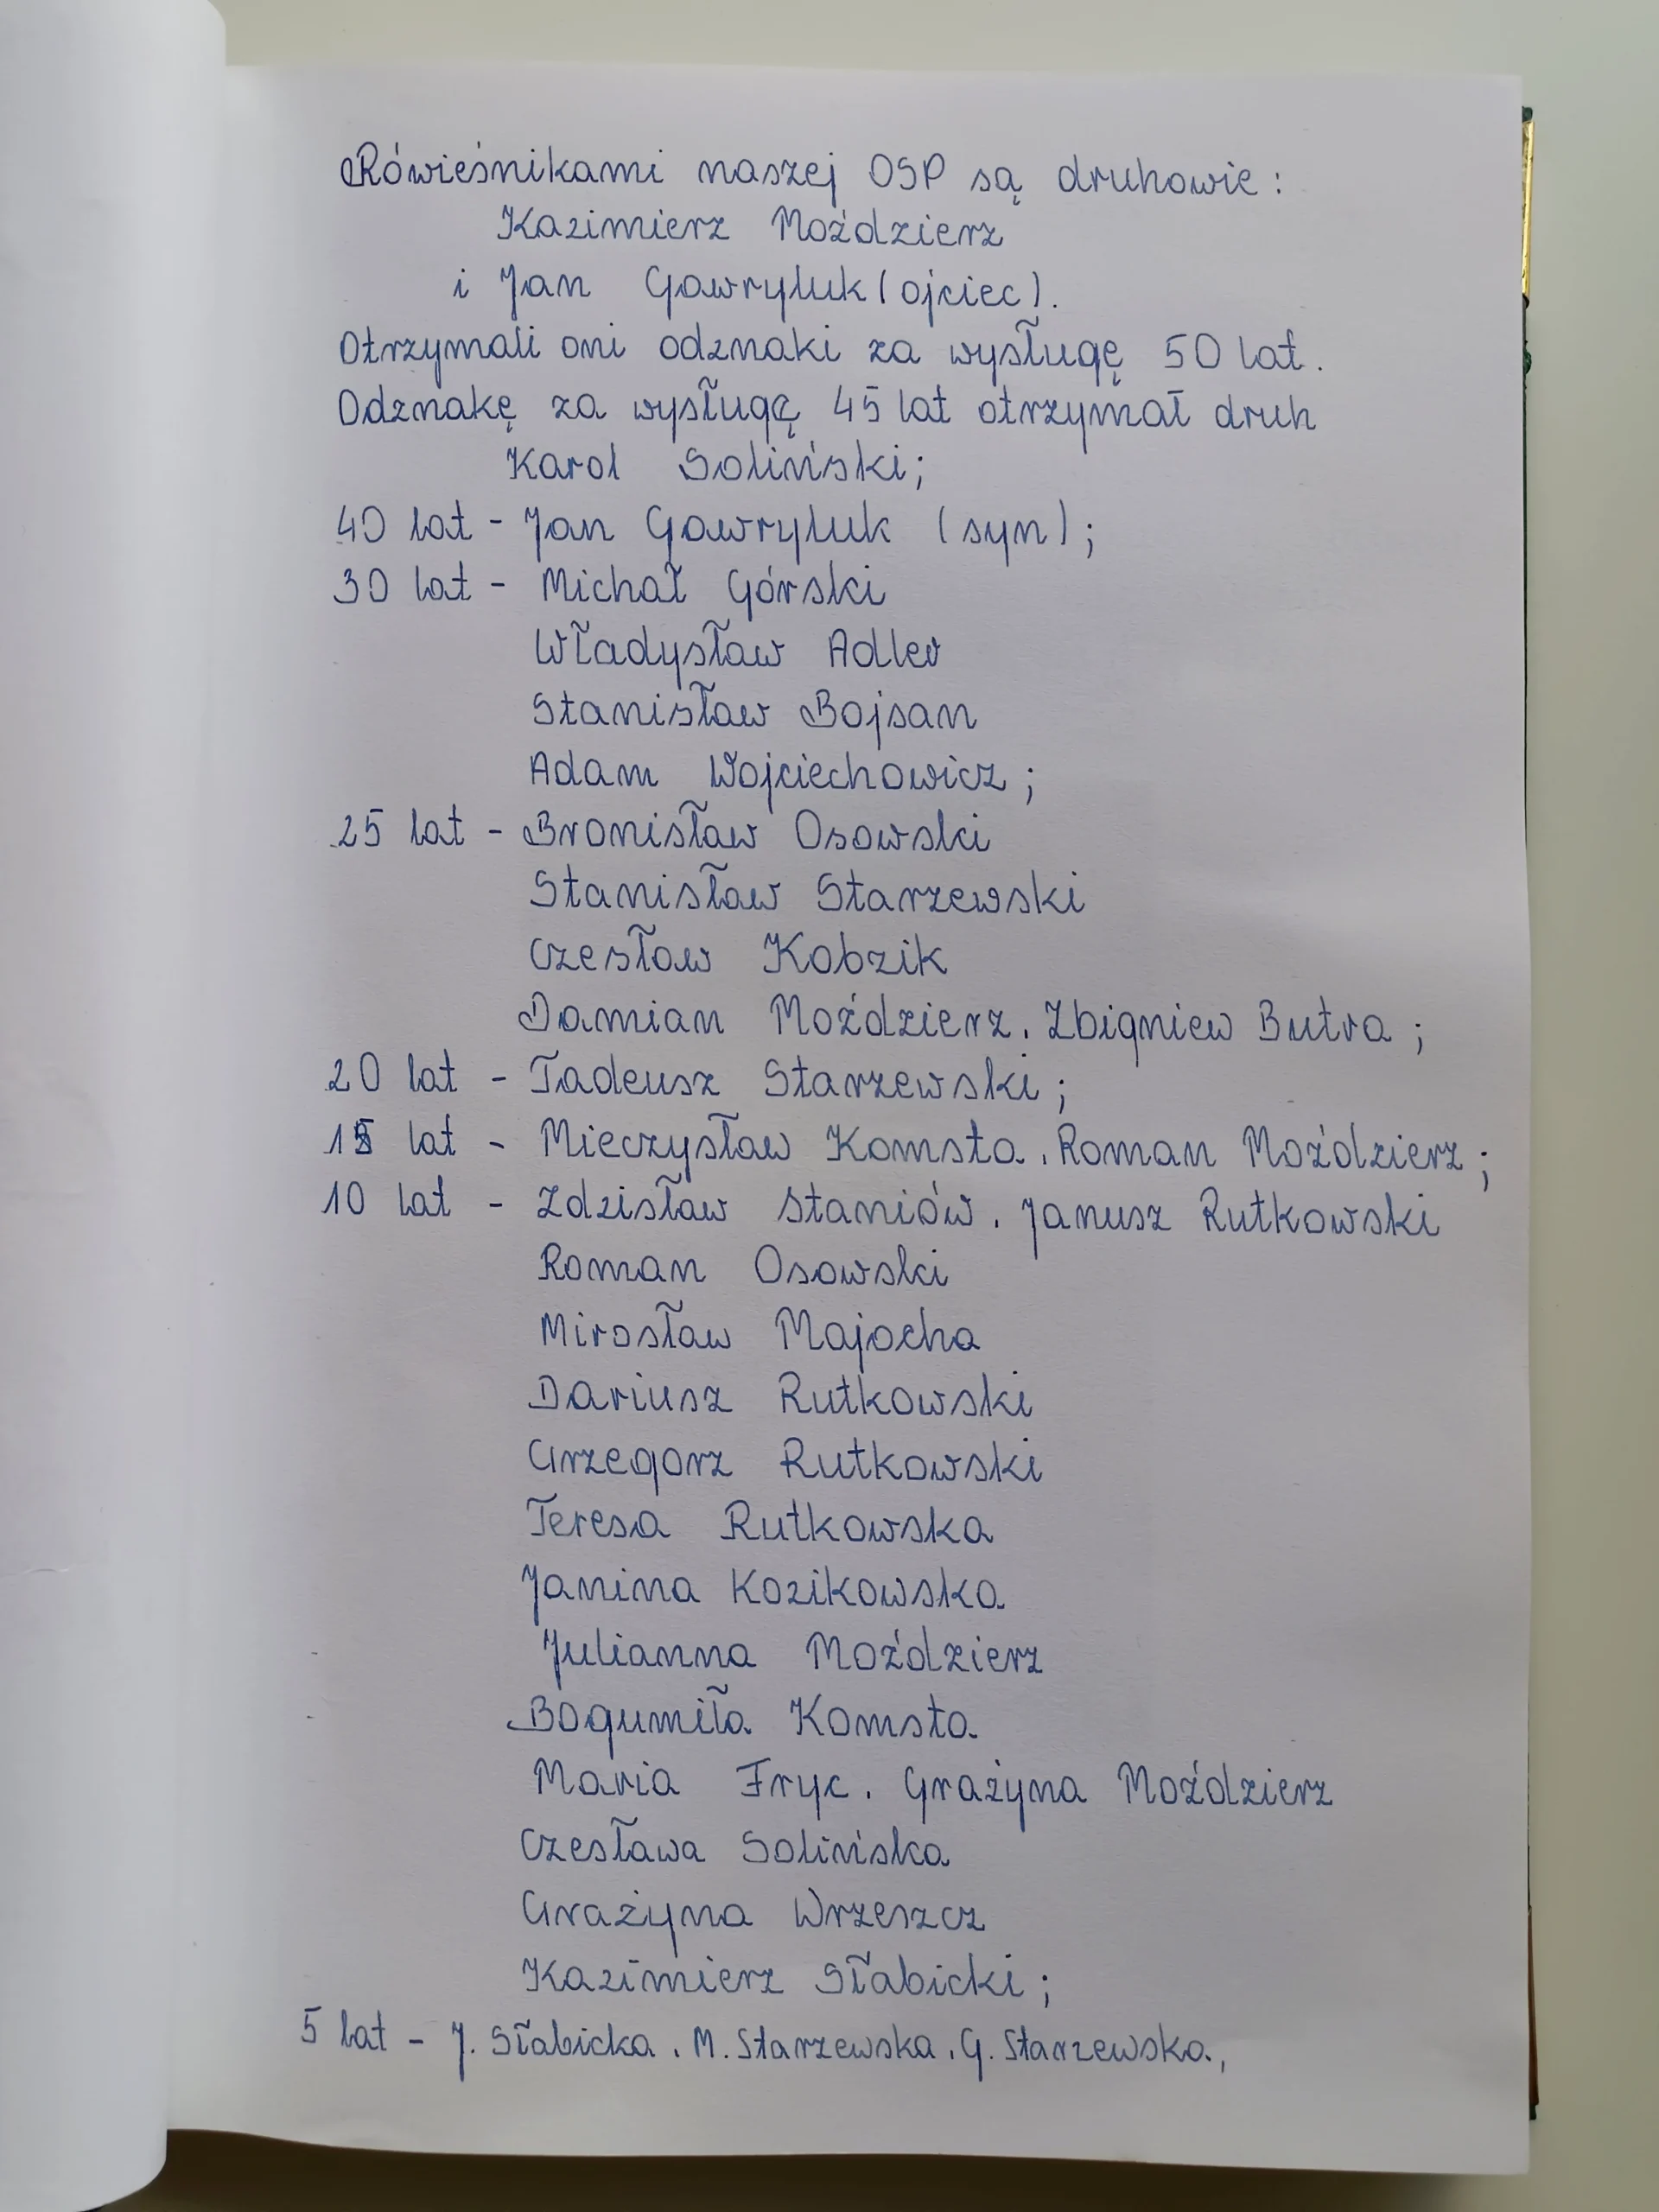 Rówieśnikami naszej OSP są druhowie:
Kazimierz Moździerz
i Jan Gawryluk (ojciec).
Otrzymali oni odznaki za wysługę 50 lat.
Odznakę za wysługę 45 lat otrzymał druh
Karol Soliński;
40 lat - Jan Gawryluk (syn);
30 lat - Michał Górski
Władysław Adler
Stanisław Bojsan
Adam Wojciechowicz;
25 lat - Bronisław Osowski
Stanisław Starzewski
Czesław Kobzik
Damian Moździerz, Zbigniew Butra;
20 lat - Tadeusz Starzewski;
15 lat - Mieczysław Komsta, Roman Moździerz;
10 lat - Zdzisław Staniów, Janusz Rutkowski
Roman Osowski
Mirosław Majocha
Dariusz Rutkowski
Grzegorz Rutkowski
Teresa Rutkowska
Janina Kozikowska
Julianna Moździerz
Bogumiła Komsta
Maria Fryc, Grażyna Moździerz
Czesława Solińska
Grażyna Wrzeszcz
Kazimierz Słabicki;
5 lat - J. Słabicka, M. Starzewska, G. Starzewska,